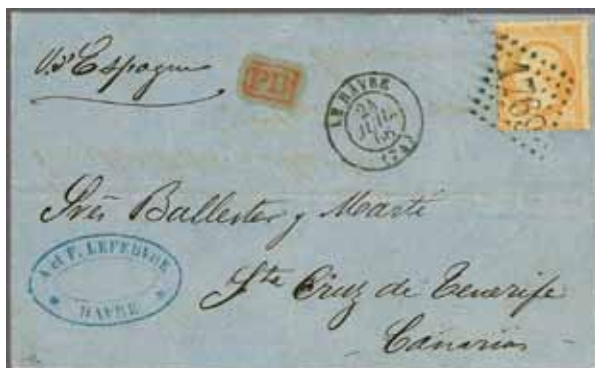 Via Espagne
PD
LE HAVRE
24
JUIL
66
(74)
Srés Ballester y Marti
A et F. LEFEBVRE
HAVRE
Sta Cruz de Tenerife
Canarias